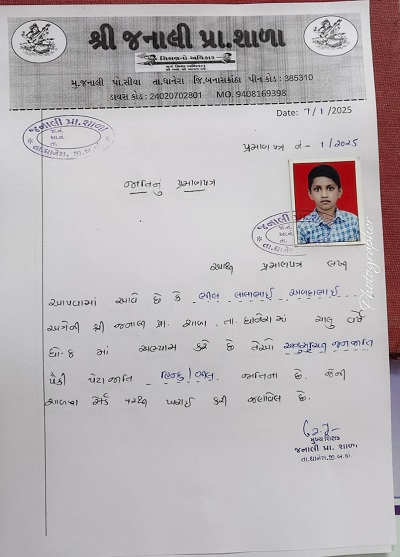 શ્રી જનાલી પ્રા.શાળા
શિક્ષણનો અધિકાર
મુ.જનાલી પો.સીવા તા.ધાનેરા જિ.બનાસકાંઠા પીન કોડ : 385310
ડાયસ કોડ : 24020702801 MO. 9408169398
Date: 7/1/2025
જનાલી પ્રા. શાળા
તા.ધાનેરા, જી.બ.કાં.
પ્રમાણ પત્ર નં - 1/2025
જાતિનું પ્રમાણપત્ર
જનાલી
તા.ધાનેરા
આથી પ્રમાણપત્ર લખી
આપવામાં આવે છે કે ભીલ લાલાભાઈ
અત્રેની શ્રી જનાલી પ્રા. શાળા, તા. ધાનેરામાં ચાલુ વર્ષે
ધો-8 માં અભ્યાસ કરે છે તેઓ અનુસૂચિત જનજાતિ
પૈકી પેટાજાતિ હિન્દુ/ભીલ જાતિના છે. જેની
શાળાના
ખરાઈ કરી જણાવેલ છે.
મુખ્ય શિક્ષક
જનાલી પ્રા. શાળા
તા.ધાનેરા, જી.બ.કાં.
Photographer